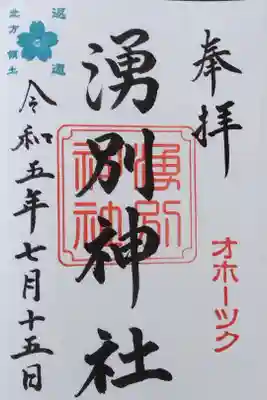 奉拝
オホーツク
湧別神社
湧別神社
令和五年七月十五日
返還
北方領土